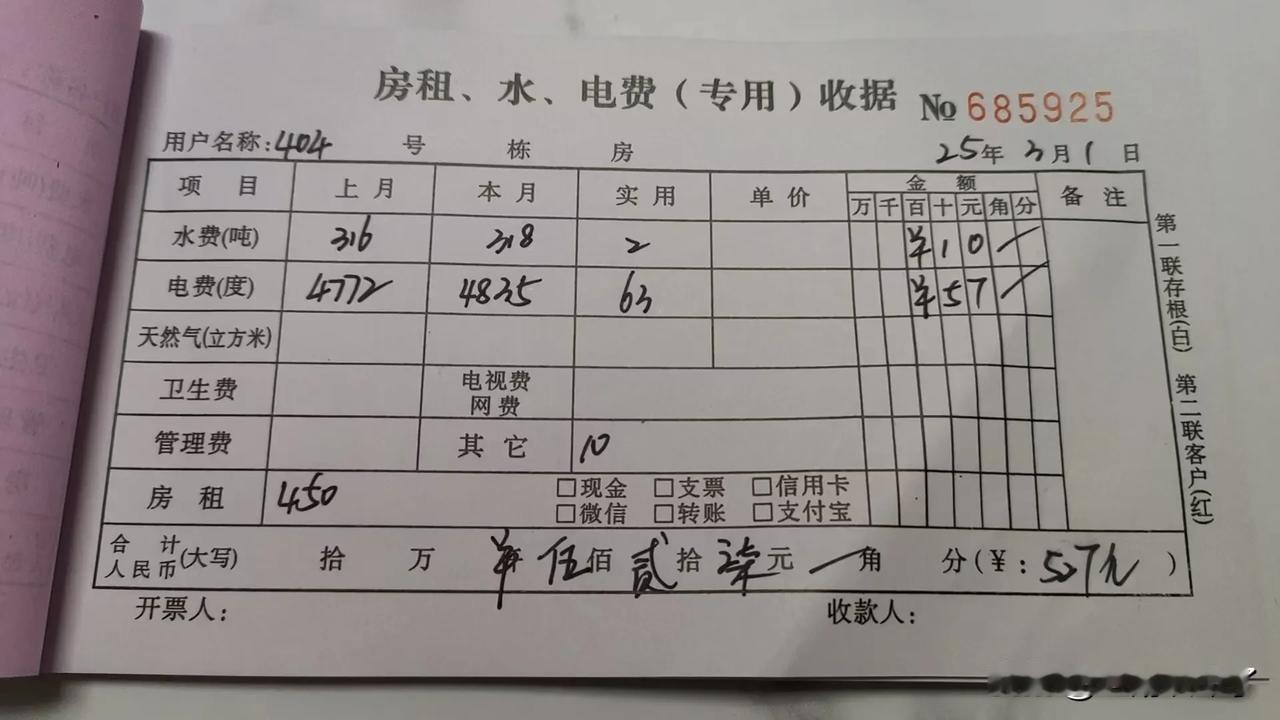 房租、水、电费（专用）收据 No 685925
用户名称:404 号 栋 房 25年3月1日
项目 上月 本月 实用 单价 金额 备注
万 千 百 十 元 角 分
水费(吨) 316 318 2 ¥10
电费(度) 4772 4835 63 ¥57
天然气(立方米)
卫生费 电视费
网费
管理费 其它 10
房租 450 □现金 □支票 □信用卡
□微信 □转账 □支付宝
合计
人民币(大写) 拾 万 伍佰贰拾柒元 角 分(¥:527元)
开票人: 收款人:
第一联存根(白) 第二联客户(红)